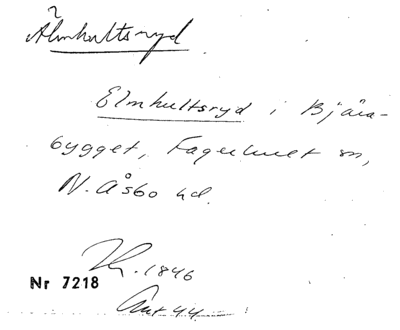 Älmhultsryd
Elmhultsryd i Bjära-
bygget, Fagerhult sn,
N. Åsbo hd.
1846
Nr 7218
Ant 44